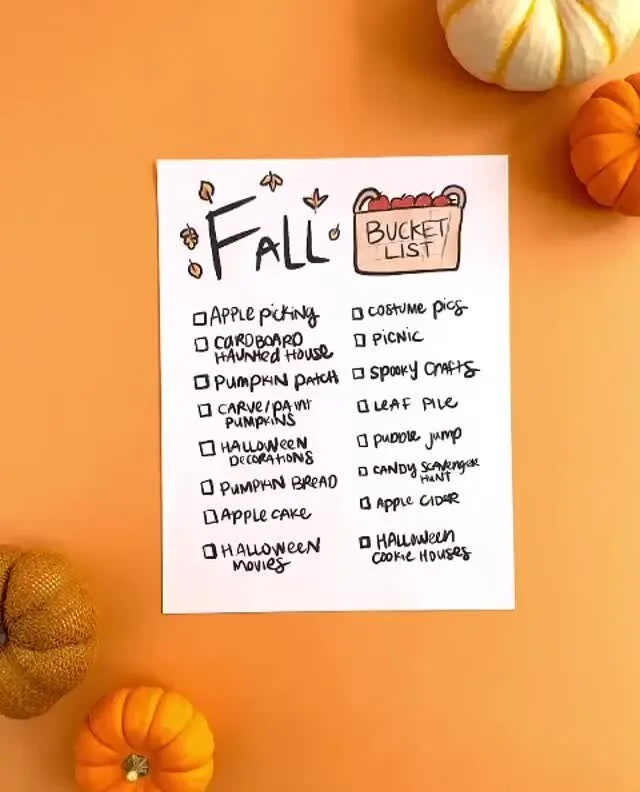 Fall
BUCKET
LIST
APPLE picking
CARDBOARD
HAUNTED HOUSE
PUMPKIN PATCH
CARVE/PAINT
PUMPKINS
HALLOWEEN
DECORATIONS
PUMPKIN BREAD
APPLE CAKE
HALLOWEEN
MOVIES
COSTUME PICS
PICNIC
SPOOKY CRAFTS
LEAF PILE
PUDDLE JUMP
CANDY SCAVENGER
HUNT
APPLE CIDER
HALLOWEEN
COOKIE HOUSES